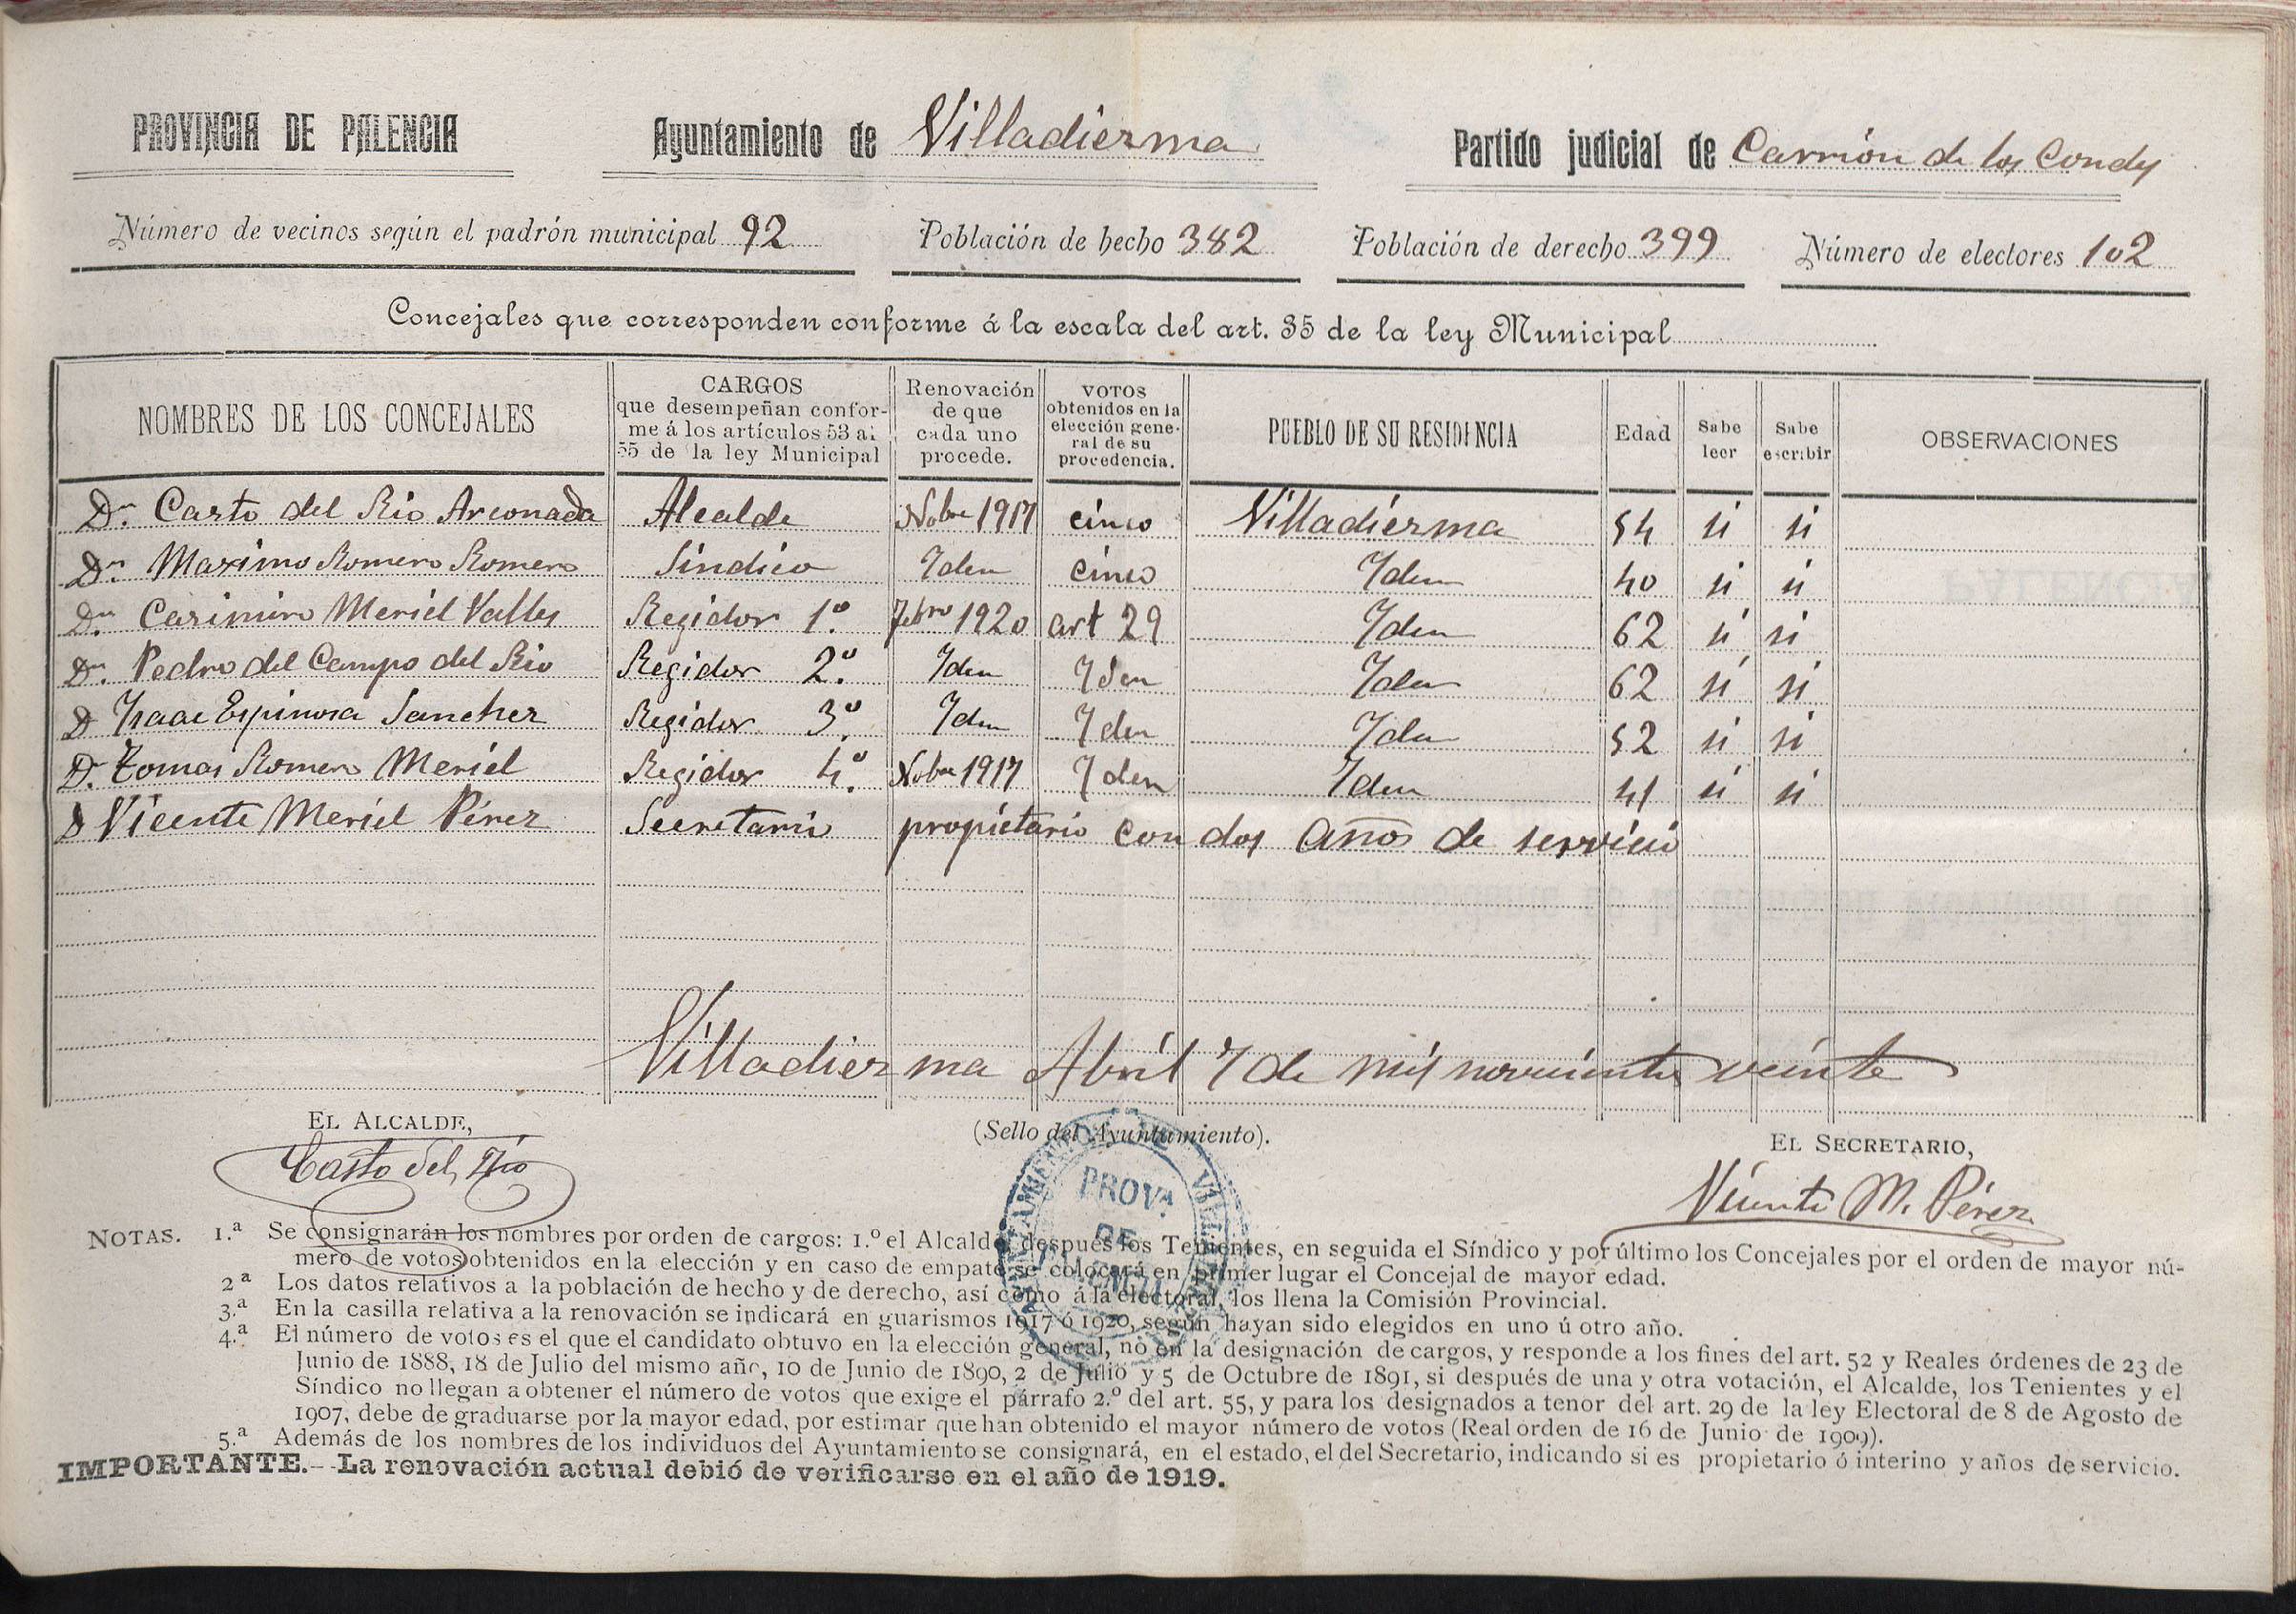 PROVINCIA DE PALENCIA Ayuntamiento de Villadierma Partido judicial de Carrión de los Condes
Número de vecinos según el padrón municipal 92 Población de hecho 382 Población de derecho 399 Número de electores 102
Concejales que corresponden conforme á la escala del art. 35 de la ley Municipal
NOMBRES DE LOS CONCEJALES
CARGOS
que desempeñan confor-
me á los artículos 53 al
55 de la ley Municipal
Renovación
de que
cada uno
procede.
VOTOS
obtenidos en la
elección gene-
ral de su
procedencia.
PUEBLO DE SU RESIDENCIA
Edad
Sabe
leer
Sabe
escribir
OBSERVACIONES
Dn. Casto del Rio Arconada Alcalde Nobre 1917 cinco Villadierma 54 si si
Dn. Maximo Romero Romero Sindico Idem cinco Idem 40 si si
Dn. Casimiro Meriel Valles Regidor 1º. Febro 1920 art 29 Idem 62 si si
Dn. Pedro del Campo del Rio Regidor 2º. Idem Idem Idem 62 si si
D Isaac Espinosa Sanchez Regidor 3º. Idem Idem Idem 52 si si
Dn Tomas Romero Meriel Regidor 4º. Nobre 1917 Idem Idem 41 si si
D Vicente Meriel Pérez Secretario propietario con dos años de servicio
Villadierma Abril 7 de mil novecientos veinte
EL ALCALDE,
Casto del Rio
(Sello del Ayuntamiento).
PROVA.
DE
EL SECRETARIO,
Vicente M. Pérez
NOTAS. 1.ª Se consignarán los nombres por orden de cargos: 1.º el Alcalde, después los Tenientes, en seguida el Síndico y por último los Concejales por el orden de mayor nú-
mero de votos obtenidos en la elección y en caso de empate se colocará en primer lugar el Concejal de mayor edad.
2ª Los datos relativos a la población de hecho y de derecho, así como á la electoral, los llena la Comisión Provincial.
3.ª En la casilla relativa a la renovación se indicará en guarismos 1917 ó 1920, según hayan sido elegidos en uno ú otro año.
4.ª El número de votos es el que el candidato obtuvo en la elección general, no en la designación de cargos, y responde a los fines del art. 52 y Reales órdenes de 23 de
Junio de 1888, 18 de Julio del mismo año, 10 de Junio de 1890, 2 de Julio y 5 de Octubre de 1891, si después de una y otra votación, el Alcalde, los Tenientes y el
Síndico no llegan a obtener el número de votos que exige el párrafo 2.º del art. 55, y para los designados a tenor del art. 29 de la ley Electoral de 8 de Agosto de
1907, debe de graduarse por la mayor edad, por estimar que han obtenido el mayor número de votos (Real orden de 16 de Junio de 1909).
5.ª Además de los nombres de los individuos del Ayuntamiento se consignará, en el estado, el del Secretario, indicando si es propietario ó interino y años de servicio.
IMPORTANTE.--La renovación actual debió de verificarse en el año de 1919.